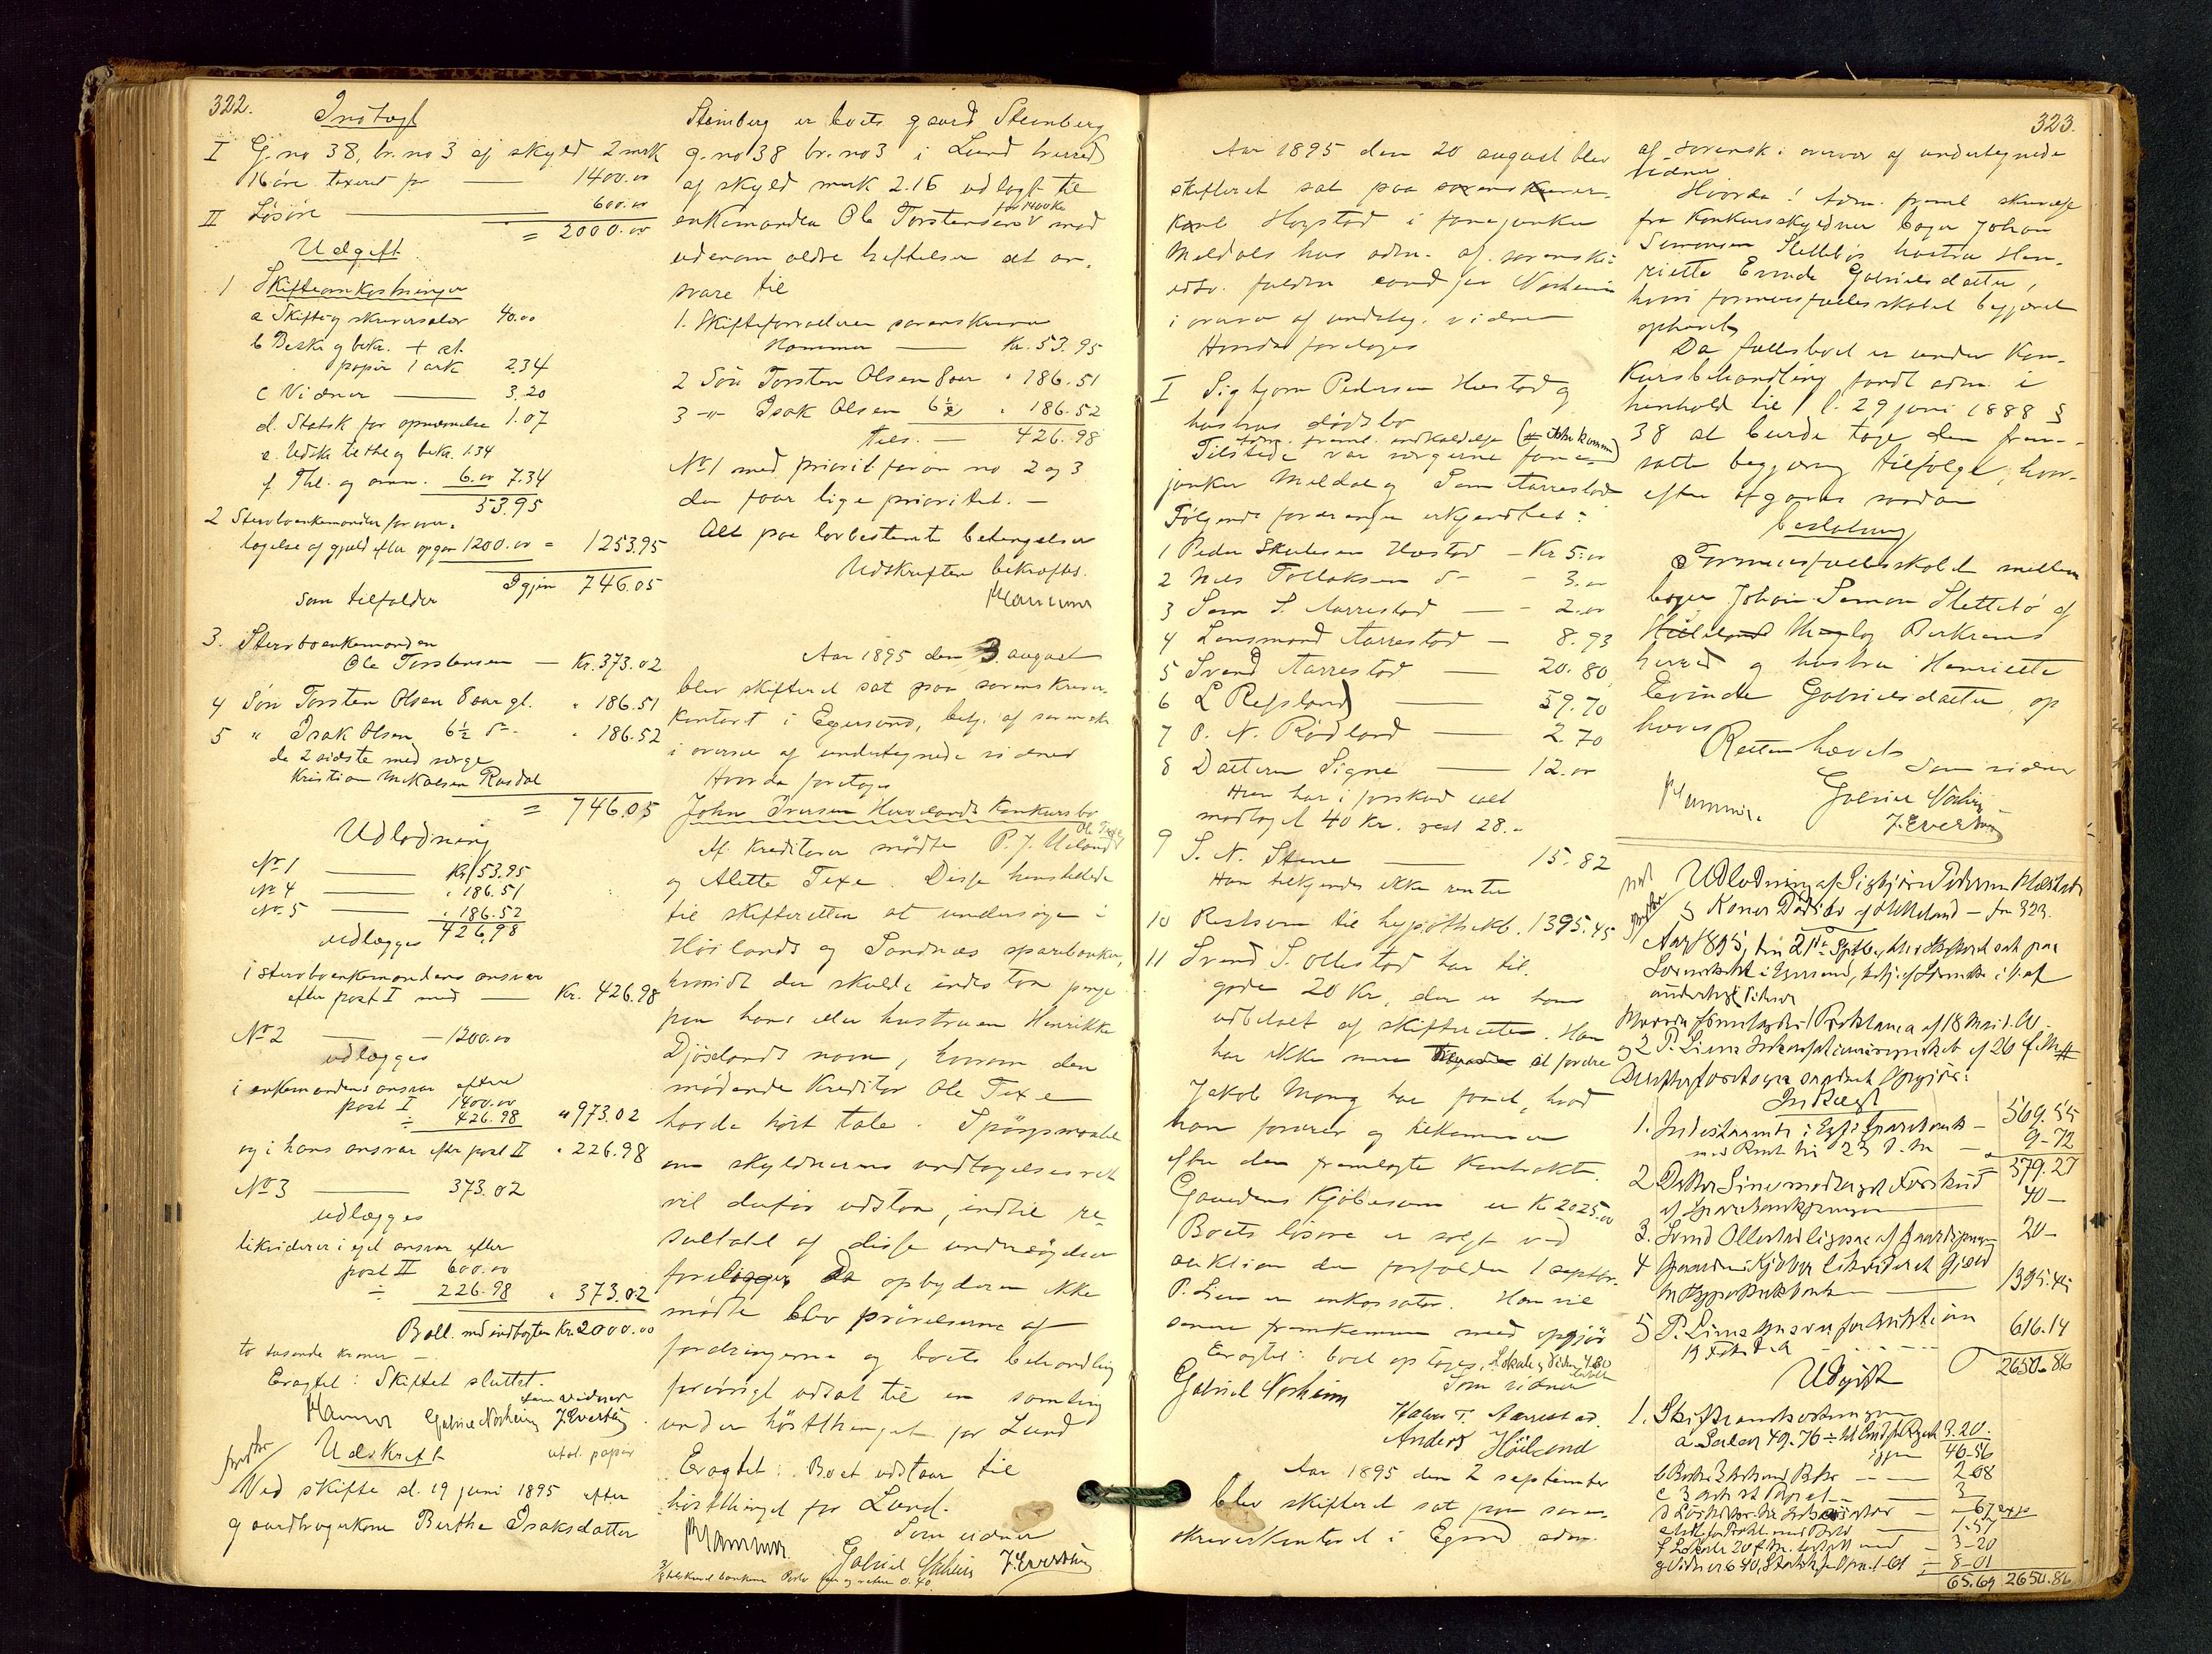 322.
Indtægt
I G.no 38, br.no 3 af skyld 2 mrk
16 øre taxeret for — 1400.00
II Løsøre — 600.00
= 2000.00
Udgift
1 Skifteomkostninger
a Skifte og skriversalær 40.00
b Beskr. og bekr. + st.
papir 1 ark 2.34
c Vidner — 3.20
d. Statsk. for opnævnelse 1.07
e. Udskr. te thl og bekr. 1.34
f Thl. og anm. 6.00 7.34
53.95
2 Stervboenkemanden for over-
tagelse af gjæld efter opgav 1200.00 = 1253.95
Igjen 746.05
som tilfalder
3. Stervboenkemanden
Ole Torstensen — Kr. 373.02
4 Søn Torsten Olsen 8 aar gl. " 186.51
5 " Isak Olsen 6½ d— " 186.52
de 2 sidste med verge
Kristian Mikalsen Rusdal
= 746.05
Udlodning
No 1 — Kr 53.95
No 4 — " 186.51
No 5 — " 186.52
426.98
udlægges
i stervboenkemandens ansvar
efter post I med — Kr. 426.98
No 2 — 1200.00
udlægges
i enkemandens ansvar efter
post I 1400.00
÷ 426.98 " 973.02
og i hans ansvar efter post II " 226.98
No 3 — 373.02
udlægges
likviderer i eget ansvar efter
post II 600.00
÷ 226.98 " 373.02
Ball. med indtægten Kr. 2000.00
to tusende kroner —
Eragtet: Skiftet sluttet.
som vidner
Hammer Gabriel Norheim J. Evertsen
Udskrift
ustl. papir
Ved skifte d. 19 juni 1895 efter
gaardbrugerkone Berthe Isaksdatter
Steinberg er boets gaard Steinberg
g.no 38 br.no 3 i Lund herred
af skyld mark 2.16 udlagt til
for 1400 Kr
enkemanden Ole Torstensen mod
udenom ældre heftelser at an-
svare til
1. Skifteforvalteren sorenskriver
Hammer — Kr. 53.95
2 Søn Torsten Olsen 8 aar " 186.51
3 -"- Isak Olsen 6½ " 186.52
tils. — 426.98
No 1 med priorit. foran no 2 og 3
der faar lige prioritet. —
Alt paa lovbestemte betingelser
Udskriften bekræftes.
Hammer
Aar 1895 den 3. august
blev skifteret sat paa sorenskriver-
kontoret i Egersund, betj. af sorenskr.
i overvær af undertegnede vidner
Hvorda foretoges
John Iversen Hervelands konkursbo
Ole Texe
Af kreditorer mødte P. J. Ueland
og Alette Texe. Disse henstillede
til skifteretten at undersøge i
Høilands og Sandnæs sparebanker,
hvorvidt der skulde indestaa penge
paa hans eller hustruen Henrikke
Djøselands navn, hvorom den
mødende kreditor Ole Texe
havde hørt tale. Spørgsmaalet
om skyldnerens undtagelsesret
vil derfor udstaa, indtil re-
sultatet af disse undersøgelser
foreligger. Da opbyderen ikke
mødte blev prøvelserne af
fordringerne og boets behandling
forøvrigt udsat til en samling
under høstthinget for Lund
Eragtet: Boet udstaar til
høstthinget for Lund.
Som vidner
Hammer Gabriel Norheim J. Evertsen
323.
Aar 1895 den 20 august blev
skifteret sat paa sorenskriver-
Karl Hegstad i fanejunker
Meldals hus adm. af sorenskr.
edsv. fuldm. cand. jur. Norheim
i overvær af underteg. vidner
Hvorda foretoges
I Sigbjørn Pedersen Hæstad og
hustrus dødsbo
Adm. freml. indkaldelse
Tilstede var vergerne fane-
junker Meldal og Sam Aarrestad
Følgende fordringer erkjendtes:
1 Peder Skulesen Hæstad — Kr 5.00
2 Nils Tollaksen d— - 3.00
3 Sam S. Aarrestad — - 2.00
4 Lensmand Aarrestad — 8.93
5 Svend Aarrestad — 20.80
6 L Refsland — 59.70
7 O. N. Rødland — 2.70
8 Datteren Signe — 12.00
Hun har i forskud ialt
modtaget 40 kr. rest 28.-
9 S. N. Stene — 15.82
Ham tilkjendes ikke renter
10 Restsum til hypothekb. 1395.45
11 Svend S. Ollestad har til-
gode 20 Kr, der er ham
udbetalt af skifteretten. Han
har ikke mere at fordre
Jakob Mong har faaet, hvad
han fordrer og tilkommer
efter den fremlagte kontrakt.
Gaardens kjøbesum er K 2025.00
Boets løsøre er solgt ved
auktion der forfalder 1 septbr.
P. Lien er inkassator. Han vil
senere fremkomme med opgjør
Eragtet: boet optages.
Som vidner
Gabriel Norheim
Halvor T. Aarrestad.
Anders Høiland
Aar 1895 den 2 september
blev skifteret sat paa soren-
skriverkontoret i Egersd. adm.
af sorenskr. i overvær af undertegnede
vidner
Hvorda: Adm. freml. skrivelse
fra konkursskyldner bager Johan
Simonsen Slettebøs hustru Hen-
riette Evinde Gabrielsdatter,
hvori formuesfællesskabet begjæret
ophævet
Da fællesboet er under kon-
kursbehandling fandt adm. i
henhold til l. 29 juni 1888 §
38 at burde tage den frem-
satte begjæring tilfølge, hvor-
efter afgaves saadan
beslutning
Formuesfællesskabet mellem
bager Johan Simon Slettebø af
Birkrems
herred og hustru Henriette
Evinde Gabrielsdatter op-
hæves
Retten hævet
Som vidner
Hammer. Gabriel Norheim
J. Evertsen
Udlodning af Sigbjørn Pedersen Hæstad
og Kones Dødsbo — fra 323.
Aar 1895, den 21de Septbr, blev Skifteret sat paa
Sorenskrkt i Egersund, betj. af Sorenskr. i O. af
undertegn. Vidner
Indtægt
1. Indestaaende i Sparebank — 569.55
med Rente til 23 d. M — 9-72
579.27
2 Datter Signe modtaget Forskud 40—
af Sparebankpenge
3. Svend Ollestad ligesaa 20—
4 Gaardens Kjøber likvideret Gjæld
til Hypothekbank — 1395.45
5 P. Liens Ansvar for Auktion 616.14
19 Febr. d. A
2650.86
Udgift
1. Skifteomkostninger
a. Salær 49.76 3.20.
igjen 46-56
2-08
3
-67
1-57
3-20
8-01
65.69 2650.86